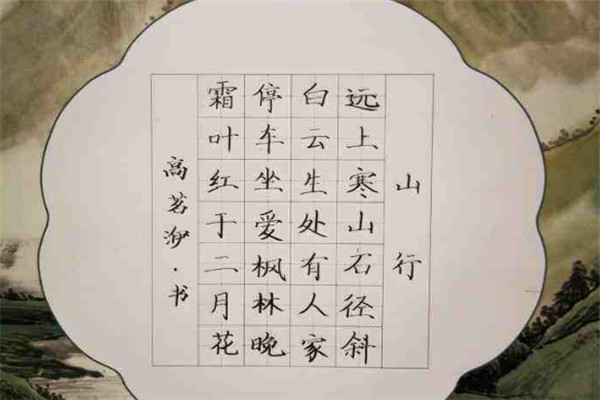 山行
远上寒山石径斜
白云生处有人家
停车坐爱枫林晚
霜叶红于二月花
高茗淤·书